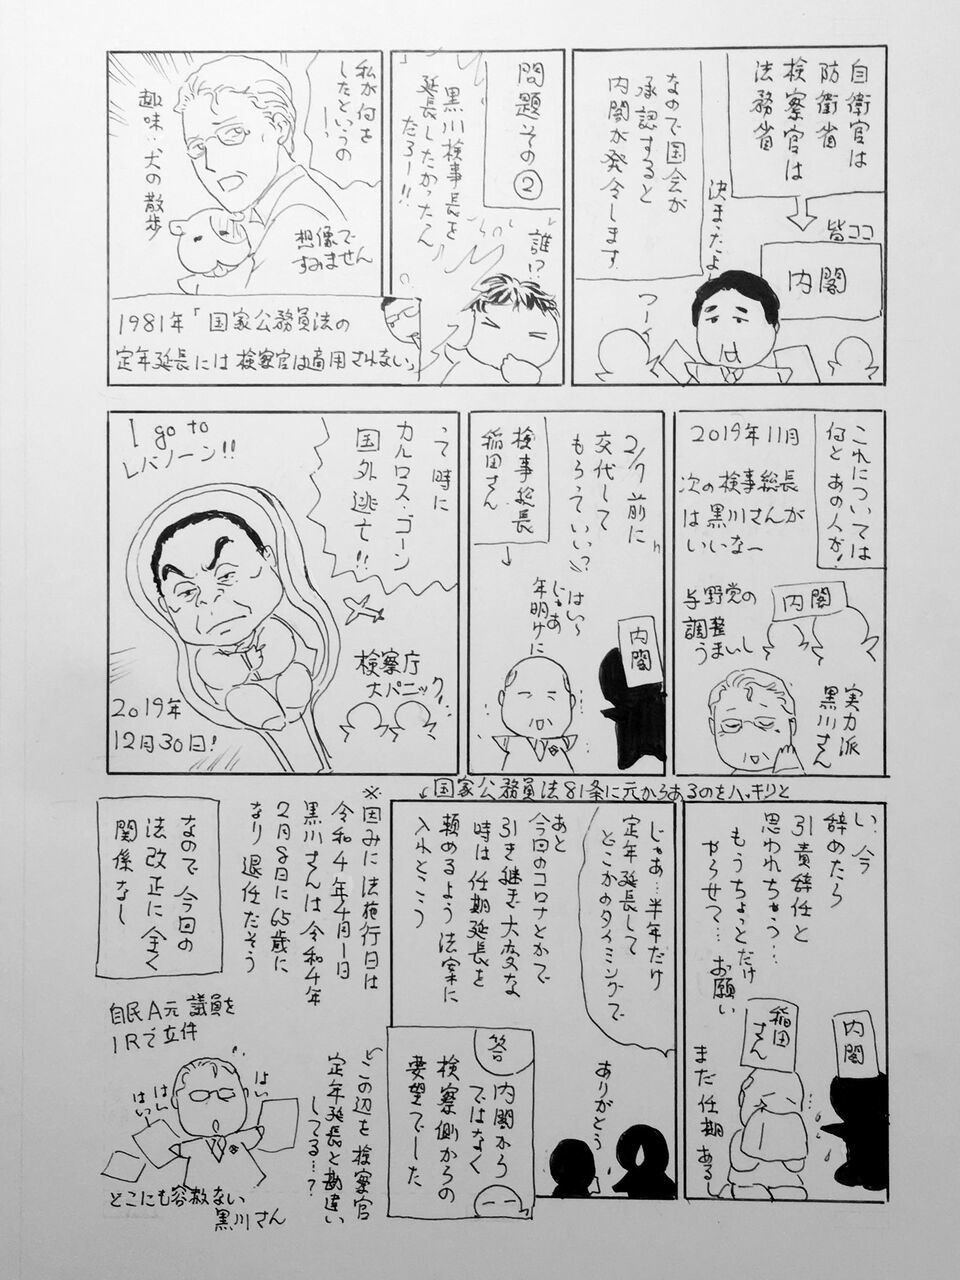 自衛官は
防衛省
検察官は
法務省
皆ココ
内閣
決まったよ
なので国会が
承認すると
内閣が発令します
問題その②
誰!?
黒川検事長を
延長したかったん
だろー!!
私が何を
したというの
趣味:犬の散歩
想像で
すみません
1981年「国家公務員法の
定年延長には検察官は適用されない」
これについては
何とあの人が!
2019年11月
次の検事総長
は黒川さんが
いいなー
内閣
与野党の
調整
うまいし
実力派
黒川さん
2/7前に
交代して
もらっていい?
内閣
はい〜
じゃあ
年明けに
検事総長
稲田さん
って時に
カルロス・ゴーン
国外逃亡!!
I go to
レバノーン!!
検察庁
大パニック
2019年
12月30日!
い、今
辞めたら
引責辞任と
思われちゃう…
もうちょっとだけ
やらせて…お願い
稲田
さん
内閣
まだ任期あるし
国家公務員法81条に元からあるのをハッキリと
じゃあ…半年だけ
定年延長して
どこかのタイミングで
ありがとう
あと
今回のコロナとかで
引き継ぎ大変な
時は任期延長を
頼めるよう法案に
入れとこう
答
内閣から
ではなく
検察側からの
要望でした
※因みに法施行日は
令和4年4月1日
黒川さんは令和4年
2月8日に65歳に
なり退任だそう
なので今回の
法改正に全く
関係なし
この辺を検察官
定年延長と勘違い
してる…?
自民A元議員を
IRで立件
はい
はい
はいっ
どこにも容赦ない
黒川さん